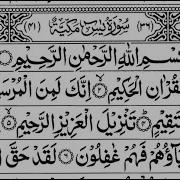 (٣٦) سُورَةُ يٰسٓ مَكِّيَّةٌ (٤١)
بِسْمِ اللهِ الرَّحْمٰنِ الرَّحِيْمِ
قُرْاٰنِ الْحَكِيْمِ اِنَّكَ لَمِنَ الْمُرْسَ
تَقِيْمٍ تَنْزِيْلَ الْعَزِيْزِ الرَّحِيْمِ
بَآؤُهُمْ فَهُمْ غٰفِلُوْنَ لَقَدْ حَقَّ ا